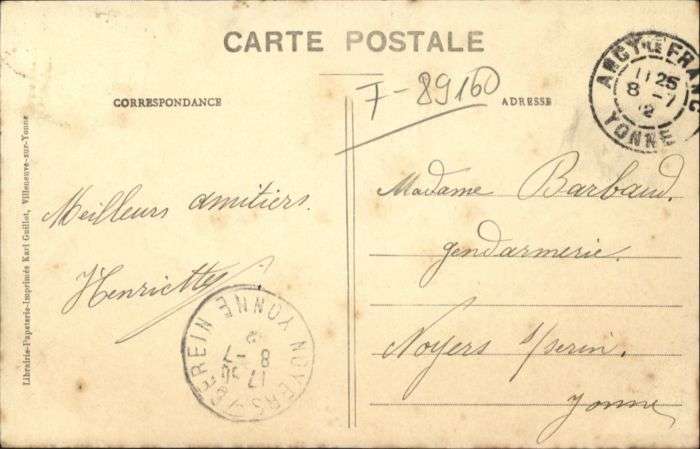 CARTE POSTALE
F-89160
CORRESPONDANCE
ADRESSE
ANCY-LE-FRANC
11 25
8 -7
12
YONNE
Meilleurs amitiers.
Henriette
Madame Barbaud.
gendarmerie.
Noyers s/serin.
Yonne
NOYERS S/ SEREIN YONNE
8 -7
Librairie-Papeterie-Imprimés Karl Guillot, Villeneuve-sur-Yonne